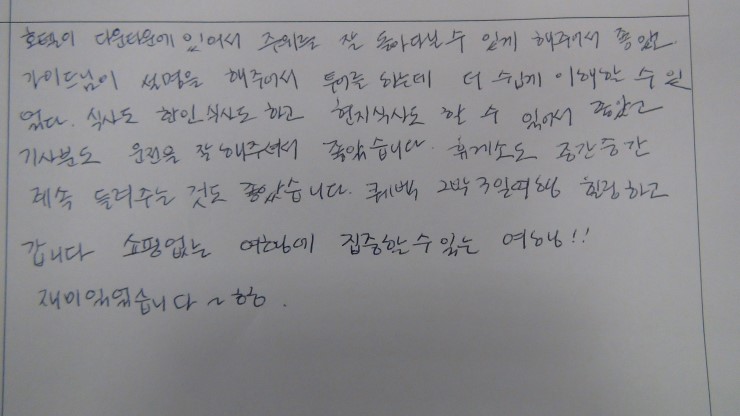 호텔이 다운타운에 있어서 주위를 잘 돌아다닐 수 있게 해주어서 좋았고
가이드님이 설명을 해주어서 투어를 하는데 더 쉽게 이해할 수 있
었다. 식사도 한인식사도 하고 현지식사도 할 수 있어서 좋았고
기사분도 운전을 잘해주셔서 좋았습니다. 휴게소도 중간중간
계속 들려주는 것도 좋았습니다. 퀘벡 2박3일여행 힐링하고
갑니다 쇼핑없는 여행에 집중할 수 있는 여행!!
재미있었습니다~